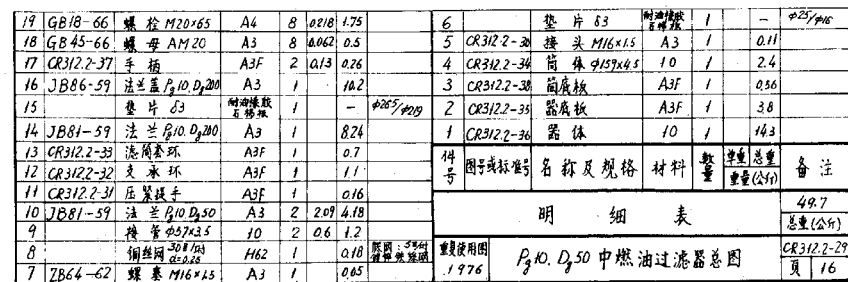 19 GB18-66 螺栓 M20×65 A4 8 0.218 1.75
18 GB45-66 螺母 AM20 A3 8 0.062 0.5
17 CR312.2-37 手柄 A3F 2 0.13 0.26
16 JB86-59 法兰盖 Pg10.Dg200 A3 1 10.2
15 垫片 δ3 耐油橡胶石棉板 1 — φ265/φ219
14 JB81-59 法兰 Pg10.Dg200 A3 1 8.24
13 CR312.2-33 滤筒套环 A3F 1 0.7
12 CR312.2-32 支承环 A3F 1 1.1
11 CR312.2-31 压紧提手 A3F 1 0.16
10 JB81-59 法兰 Pg10 Dg50 A3 2 2.09 4.18
9 接管 φ57×3.5 10 2 0.6 1.2
8 铜丝网 H62 1 0.18
7 ZB64-62 螺塞 M16×1.5 A3 1 0.05
6 垫片 δ3 耐油橡胶石棉板 1 — φ25/φ16
5 CR312.2-30 接头 M16×1.5 A3 1 0.11
4 CR312.2-34 筒体 φ159×4.5 10 1 2.4
3 CR312.2-38 筒底板 A3F 1 0.56
2 CR312.2-35 器底板 A3F 1 3.8
1 CR312.2-36 器体 10 1 14.3
件号 图号或标准号 名称及规格 材料 数量 单重 总重 重量(公斤) 备注
明细表 49.7 总重(公斤)
重复使用图 1976 Pg10.Dg50 中燃油过滤器总图 CR312.2-29
页 16